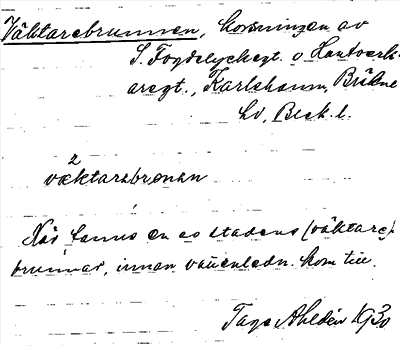 Väktarebrunnen, korsningen av
S. Fogdelyckegt. o Hantverk-
aregt., Karlshamn, Bräkne
hd, Blek. l.
2
væktarabrønən
Här fanns en av stadens (väktare)-
brunnar, innan vattenledn. kom till.
Tage Ahldén 1930